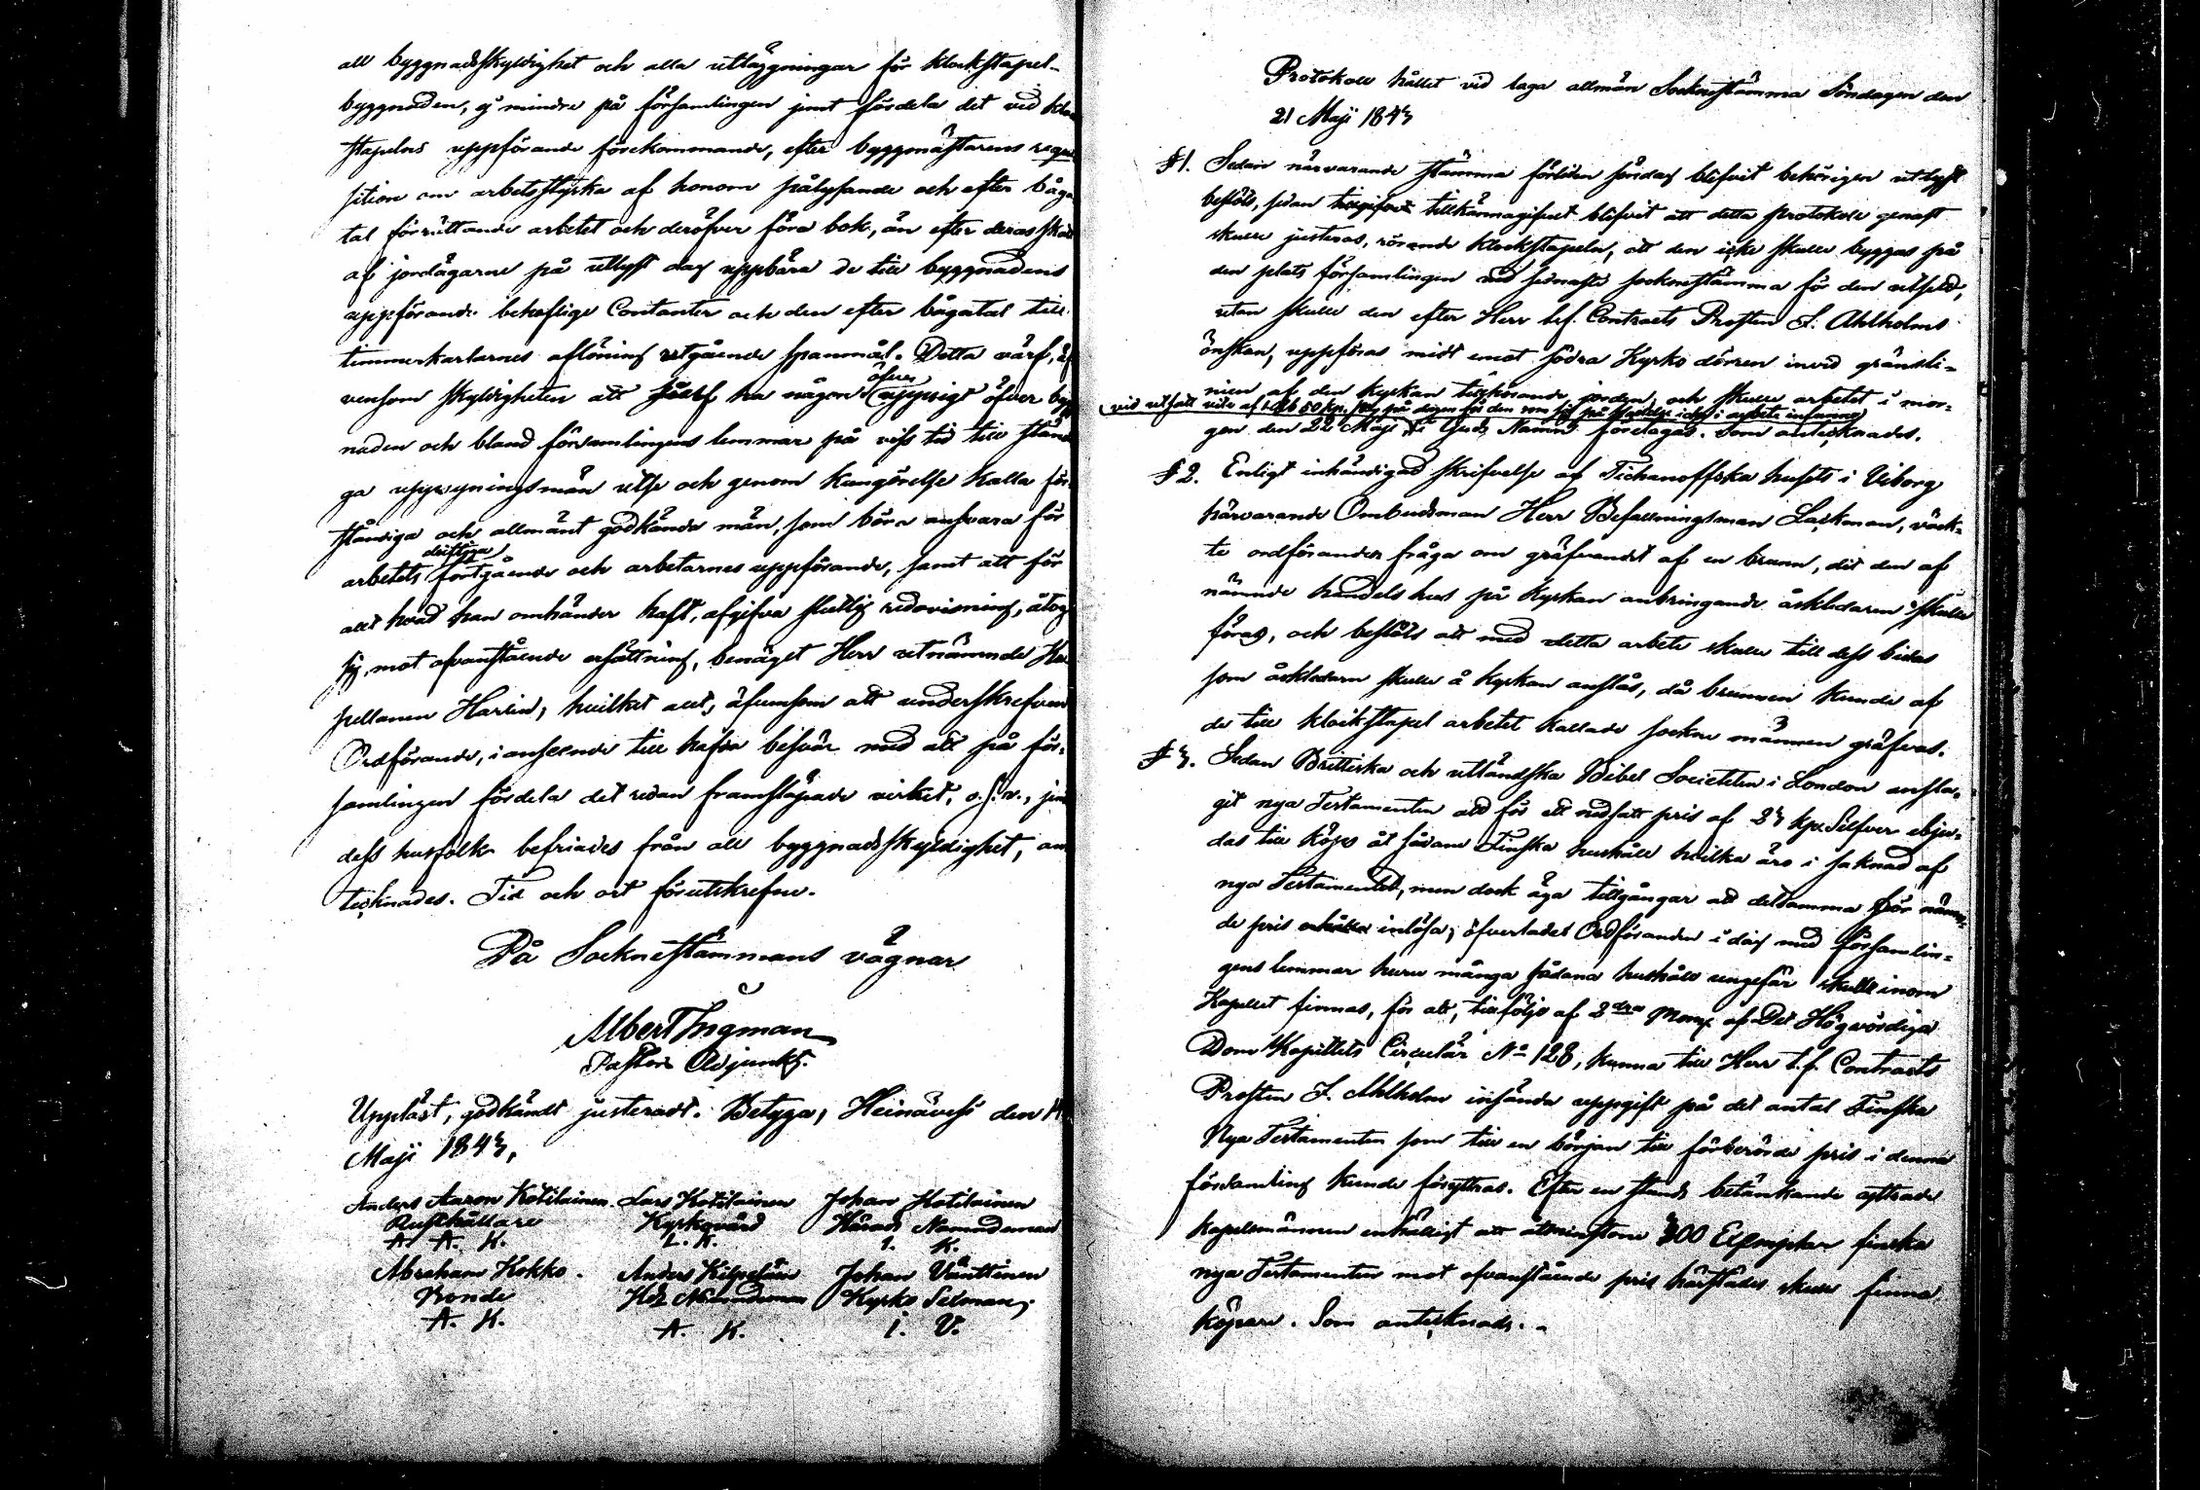 all byggnadsskyldighet och alla utläggningar för klockstapel-
byggnaden, ej mindre på församlingen jemt fördela det vid
stapelns uppförande förekommande, efter byggmästarens
sition om arbetsstyrka af honom pålysande och efter båga
tal förrättande arbetet och deröfver föra bok, än efter deras
af jordägarne på utlyst dag uppbära de till byggnadens
uppförande behöflige Contanter och den efter bågatal till
timmerkarlarnes aflöning utgående spanmål. Detta värf,
vensom skyldigheten att sjelf ha någon öfver uppsigt öfver
naden och bland församlingens lemmar på viss tid till
ga uppsyningsmän utse och genom kungörelse kalla
ståndiga och allmänt godkände män, som böra ansvara för
arbetets driftiga fortgående och arbetarnes uppförande, samt att för
allt hvad han omhänder haft, afgifva slutlig redovisning, åtog
sig, mot ofvanstående ersättning, benäget Herr utnämnde
pellanen Harlin, hvilket allt, äfvensom att underskrefven
Ordförande, i anseende till hafda besvär med att på för-
samlingen fördela det redan framsläpade virket, o.s.v.,
dess husfolk befriades från all byggnadsskyldighet, an
tecknades. Tid och ort förutskrefne.
På Sockne Stämmans vägnar
Albert Ingman
Pastors Adjunkt.
Uppläst, godkändt justeradt. Betyga, Heinävesi den
Maji 1843,
Anders Aaron Kotilainen Lars Kotilainen Johan Kotilainen
Rusthållare Kyrkovärd Härads Nämndeman
A. A. K. L. K. I. K.
Abraham Kokko. Anders Kilpeläin Johan Vänttinen
Bonde Hds Nämndeman Kyrko Sexman
A. K. A. K. I. V.
Protokoll hållet vid laga allmän Sockne Stämma Söndagen den
21 Maji 1843
§ 1. Sedan närvarande stämma förliden söndag blifvit behörigen utlyst
beslöts, sedan tillkännagifvet blifvit att detta protokoll genast
skulle justeras, rörande klockstapeln, att den icke skulle byggas på
den plats församlingen vid sednaste socknestämma för den utsedd,
utan skulle den efter Herr t.f. Contracts Prosten F. Ahlholms
önskan, uppföras midt emot södra Kyrko dörren invid gränseli-
nien af den kyrkan tillhörande jorden, och skulle arbetet i mor-
vid utsatt vite af 50 kop. på dagen för den som
gen den 22 Maji i Guds Namn företagas. Som antecknades.
§ 2. Enligt inhändigad skrifvelse af Tichanoffska husets i Viborg
härvarande Ombudsman Herr Befallningsman Lackman, väck-
te ordföranden fråga om gräfvandet af en brunn, dit den af
nämnde handels hus på Kyrkan anbringande åskledaren skulle
föras, och beslöts att med detta arbete skulle till dess bidas
som åskledaren skulle å kyrkan anslås, då brunnen kunde af
de till klockstapel arbetet kallade sockne männen gräfvas.
§ 3. Sedan Brittiska och utländska Bibel Societeten i London ansla-
git nya Testamenten att för ett nedsatt pris af 23 kop. Silfver utbju-
das till köps åt sådane Finska hushåll hvilka äro i saknad af
nya Testamentet, men dock äga tillgångar att detsamma för nämn-
de pris inlösa; öfverlade Ordföranden i dag med församlin-
gens lemmar huru många sådana hushåll ungefär skulle inom
Kapellet finnas, för att, till följe af 2dra Mom. af Det Högvördiga
Dom Kapitlets Circulär No 128, kunna till Herr t.f. Contracts
Prosten F. Ahlholm insända uppgift på det antal Finska
Nya Testamenten som till en början till förberörde pris i denna
församling kunde försyttras. Efter en stunds betänkande yttrade
kapellmännen enhälligt att åtminstone 300 Exemplar finska
nya Testamenten mot ofvanstående pris härstädes skulle finna
köpare. Som antecknades.